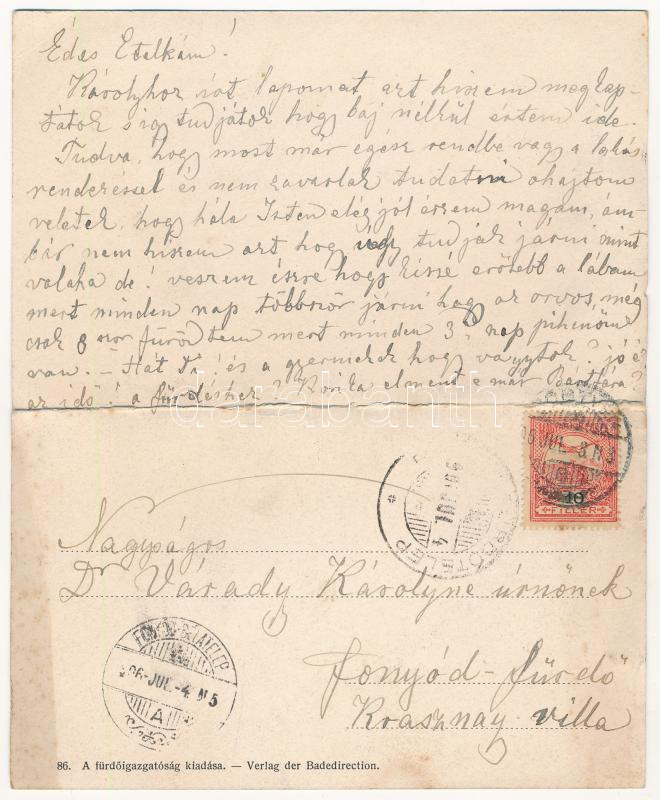 Édes Etelkám!
Károlyhoz írt lapomat azt hiszem megkap-
tátok s így tudjátok hogy baj nélkül értem ide.
Tudva, hogy most már egész rendbe vagy a lakás
rendezéssel és nem zavarlak tudatni ohajtom
veletek, hogy hála Isten elég jól érzem magam, ám-
bár nem hiszem azt hogy úgy tudjak járni mint
valaha de! veszem észre hogy kissé erősebb a lábam
mert minden nap többször járni hagy az orvos, még
csak 8 szor fürödtem mert minden 3. nap pihenőm
van. - Hát Ti! és a gyermekek hogy vagytok? jó é
az idő! a fürdéshez? elment e már Bártfára?
darabanth
10
FILLÉR
906 JUL 4
Nagyságos
Dr Várady Károlyné úrnőnek
Fonyód-fürdő
Krasznay villa
FONYÓD-BÉLATELEP
906 JUL -4 N5
A
86. A fürdőigazgatóság kiadása. — Verlag der Badedirection.